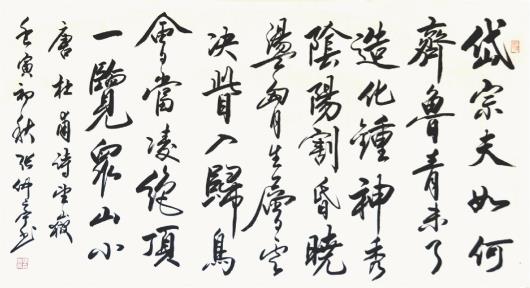 岱宗夫如何
齊魯青未了
造化鍾神秀
陰陽割昏曉
盪胸生層雲
決眥入歸鳥
會當凌絕頂
一覽眾山小
唐杜甫詩望嶽
壬寅初秋張仲亭書